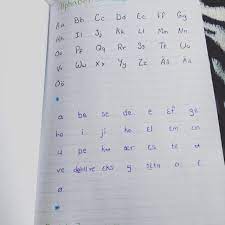 Alphabet
Aa Bb Cc Dd Ee Ff Gg
Hh Ii Jj Kk Ll Mm Nn
Oo Pp Qq Rr Ss Tt Uu
Vv Ww Xx Yy Zz Åå Ää
Öö
a be se de e ef ge
ho i ji ko el em en
o pe ku er es te u
ve eks y seta o